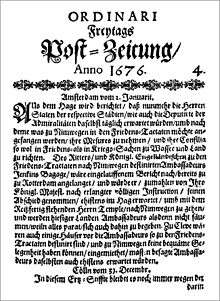 ORDINARI
Freytags
Post-Zeitung/
Anno 1676. 4.
Amsterdam vom 2. Januarii.
Aus dem Hage wird berichtet/ daß nunmehr die Herren
Staten der respective Städten/ wie auch die Deputirte der
Admiralitäten daselbst täglich erwartet würden/ umb nach
deme was zu Nimwegen in den Friedens-Tractaten möchte an-
gefangen werden/ ihre zu formiren/ und ihre Consilia
so wol in Friedens- als in Kriegs-Sachen zu Wasser und Land
zu richten. Des Ritters/ und Königl. zu den
Friedens-Tractaten nach Nimwegen Ambassadeurs
Jenkins Bagage/ wäre eingelauffenem Bericht nach/ bereits zu
zu Rotterdam angelanget/ und würde er/ zumahlen von Ihr
Königl. Mayest. nach erlangter völliger Instruction/ seinen
Abschied genommen/ ehistens im Hager erwartet/ umb mit dem
Residirenden Herrn Temple/ nach Nimwegen zu gehen/
und werden hiesiger Landen Ambassadeurs alsdenn nicht säu-
men/ weiln alles parat/ sich auch dahin zu begeben. Zu Cleve wür-
den auch einige Häuser vor die Ambassadeurs so zu den Friedens-
Tractaten destiniret sind/ und zu Nimwegen keine bequäme Gele-
genheit haben können/ eingemiethet/ massen selbige Ambassa-
deurs daselbsten auch ehistens erwartet würden.
Cölln vom 31. Decembr.
In diesem Ertz-Stiffte bleibt es noch immer wegen der
darin